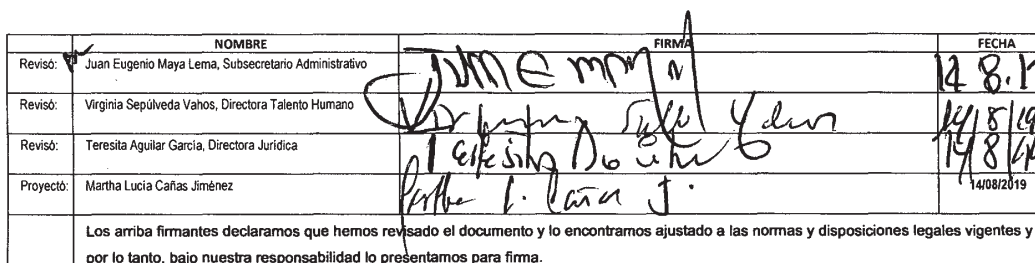 NOMBRE FIRMA FECHA
Revisó: Juan Eugenio Maya Lema, Subsecretario Administrativo
Revisó: Virginia Sepúlveda Vahos, Directora Talento Humano 14/8/19
Revisó: Teresita Aguilar García, Directora Jurídica
Proyectó: Martha Lucía Cañas Jiménez 14/08/2019
Los arriba firmantes declaramos que hemos revisado el documento y lo encontramos ajustado a las normas y disposiciones legales vigentes y
por lo tanto, bajo nuestra responsabilidad lo presentamos para firma.